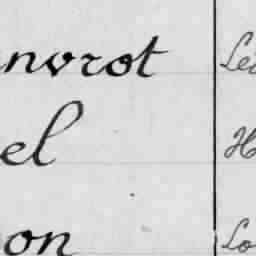 nvrot Léo
el H
on Lo